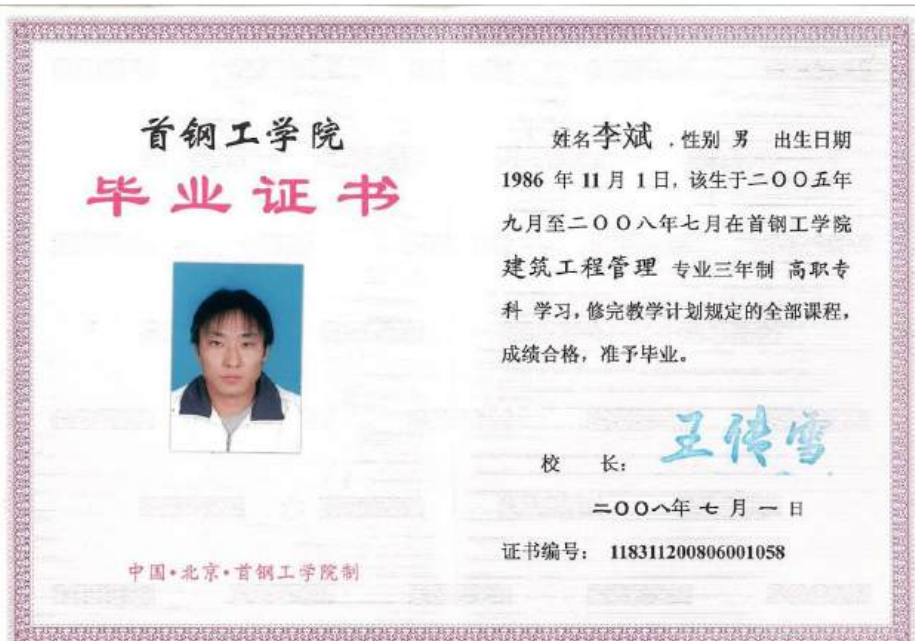 首钢工学院
毕业证书
中国•北京•首钢工学院制
姓名李斌 .性别 男 出生日期
1986 年 11 月 1 日，该生于二〇〇五年
九月至二〇〇八年七月在首钢工学院
建筑工程管理 专业三年制 高职专
科 学习，修完教学计划规定的全部课程，
成绩合格，准予毕业。
校 长： 王传雪
二〇〇八年 七 月 一 日
证书编号： 118311200806001058